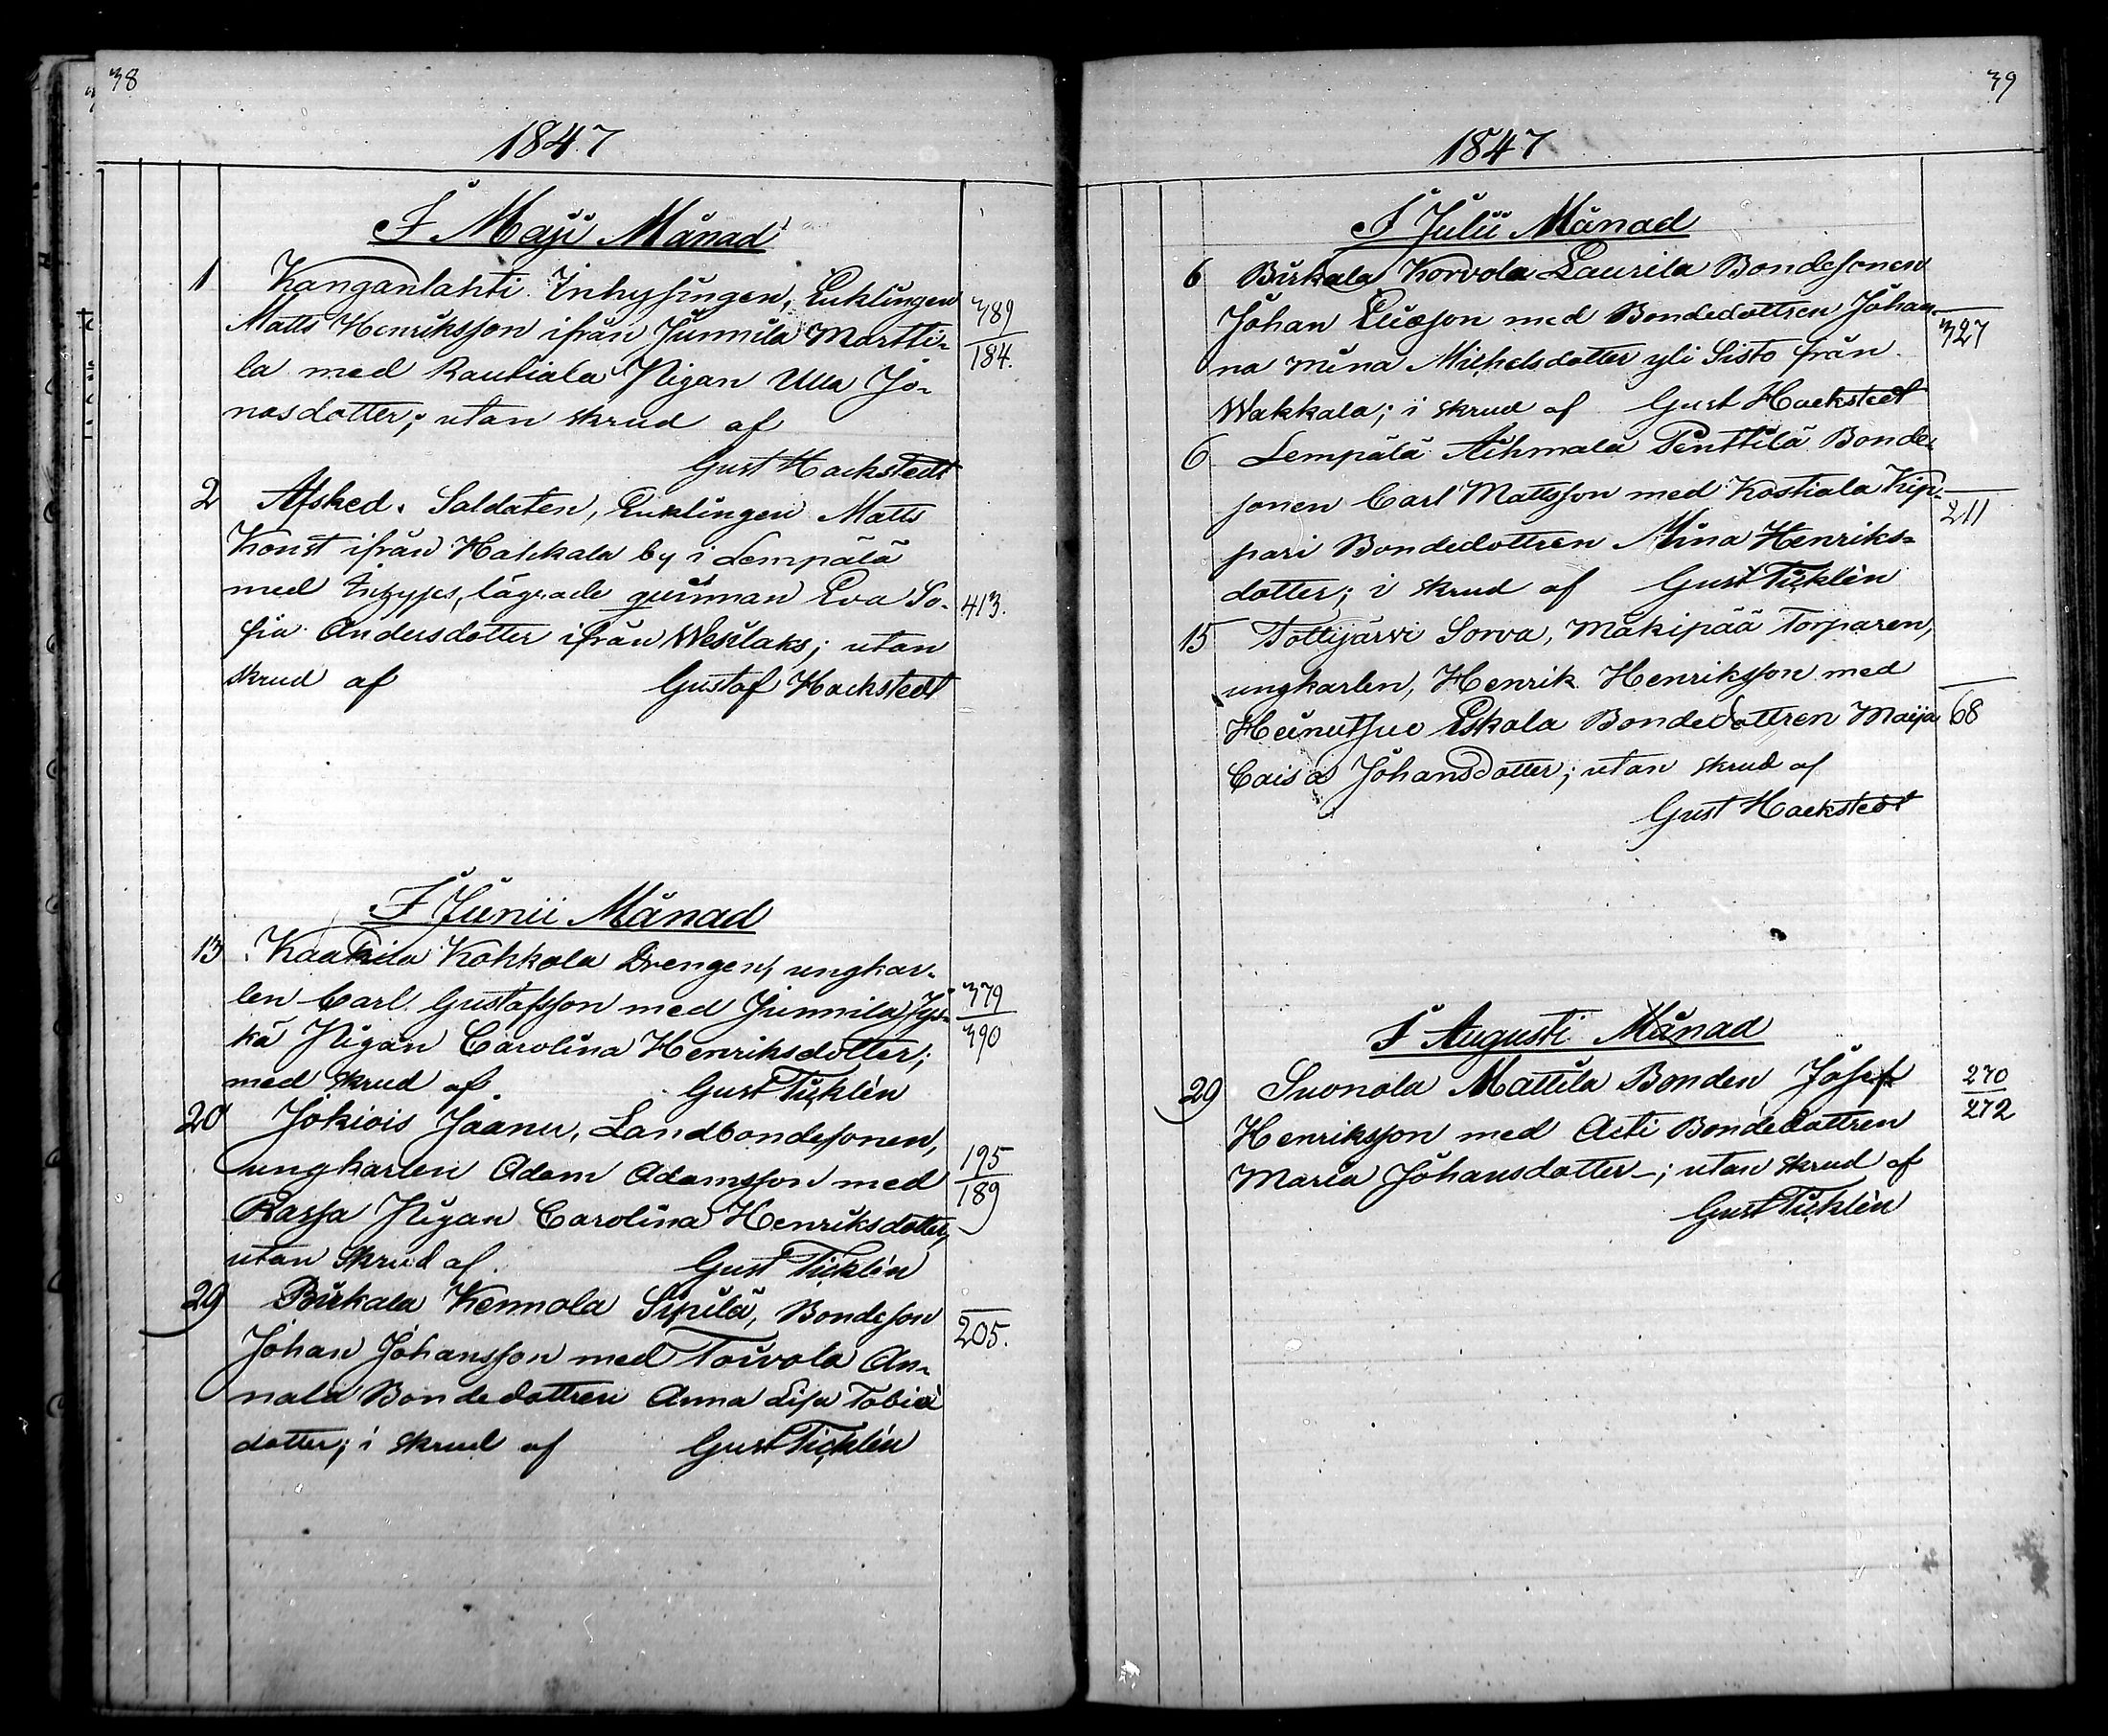 38
1847
I Maji Månad
1 Kanganlahti Inhysingen, Enklingen
Matts Henriksson ifrån Junnila Martti- 389
la med Rautiala Pigan Ulla Jo- 184.
nasdotter; utan skrud af
Gust Hackstedt
2 Afsked. Soldaten, Enklingen Matts
Konst ifrån Hakkala by i Lempälä
med lägrade qvinnan Eva So- 413.
fia Andersdotter ifrån Wesilaks; utan
skrud af Gustaf Hackstedt
I Junii Månad
13 Kaakila Kohkola Drengen, ungkar-
len Carl Gustafsson med Junnila Jys- 379
kä Pigan Carolina Henriksdotter; 390
med skrud af Gust Ticklén
20 Jokiois Jaanu, Landbondesonen,
ungkarlen Adam Adamsson med 195
Rassa Pigan Carolina Henriksdotter, 189
utan skrud af Gust Ticklén
29 Birkala Kennola Sipilä, Bondeson
Johan Johansson med Toivola An- 205.
nala Bondedottren Anna Lisa Tobiæ
dotter; i skrud af Gust Ticklén
39
1847
I Julii Månad
6 Birkala Korvola Laurila Bondesonen
Johan Eliæson med Bondedottren Johan- 327
na Mina Michelsdotter yli Sisto från
Wakkala; i skrud af Gust Hackstedt
6 Lempälä Aihmala Penttilä Bonde-
sonen Carl Mattsson med Kostiala Kip- 211
pari Bondedottren Mina Henriks-
dotter; i skrud af Gust Ticklén
15 Tottijärvi Sorva, Mäkipää Torparen,
ungkarlen, Henrik Henriksson med
Heinutsuo Eskola Bondedottren Maija 68
Caisa Johansdotter; utan skrud af
Gust Hackstedt
I Augusti Månad
29 Suonola Mattila Bonden Josef 270
Henriksson med Asti Bondedottren 272
Maria Johansdotter; utan skrud af
Gust Ticklén